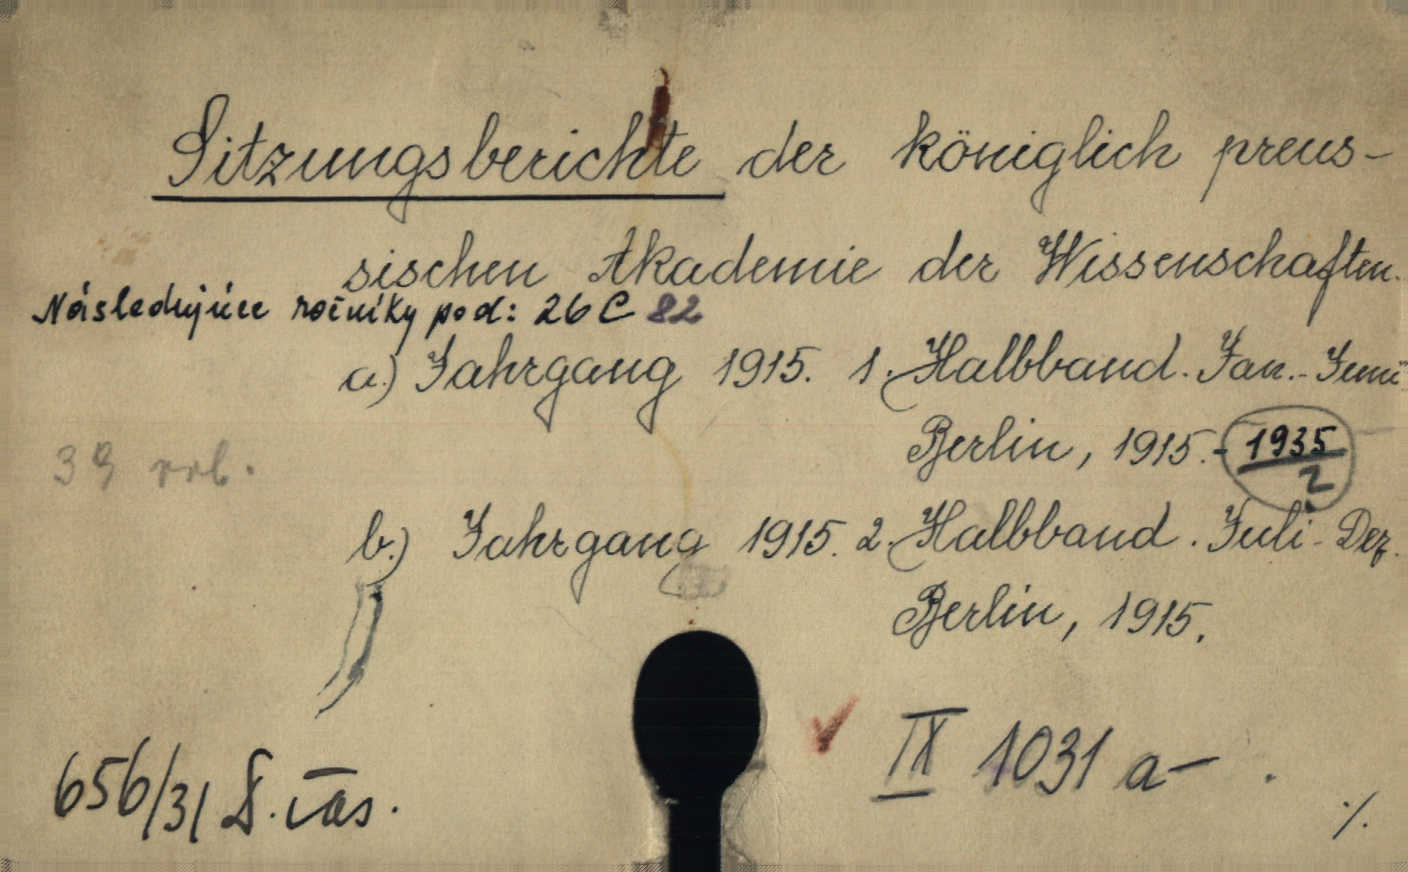 Sitzungsberichte der königlich preus-
sischen Akademie der Wissenschaften.
Následujúce ročníky pod: 26 C 82
a.) Jahrgang 1915. 1. Halbband. Jan.- Juni
Berlin, 1915.- 1935/2
39
b.) Jahrgang 1915. 2. Halbband. Juli - Dez.
Berlin, 1915.
IX 1031 a-
656/31 S. čas.
./.